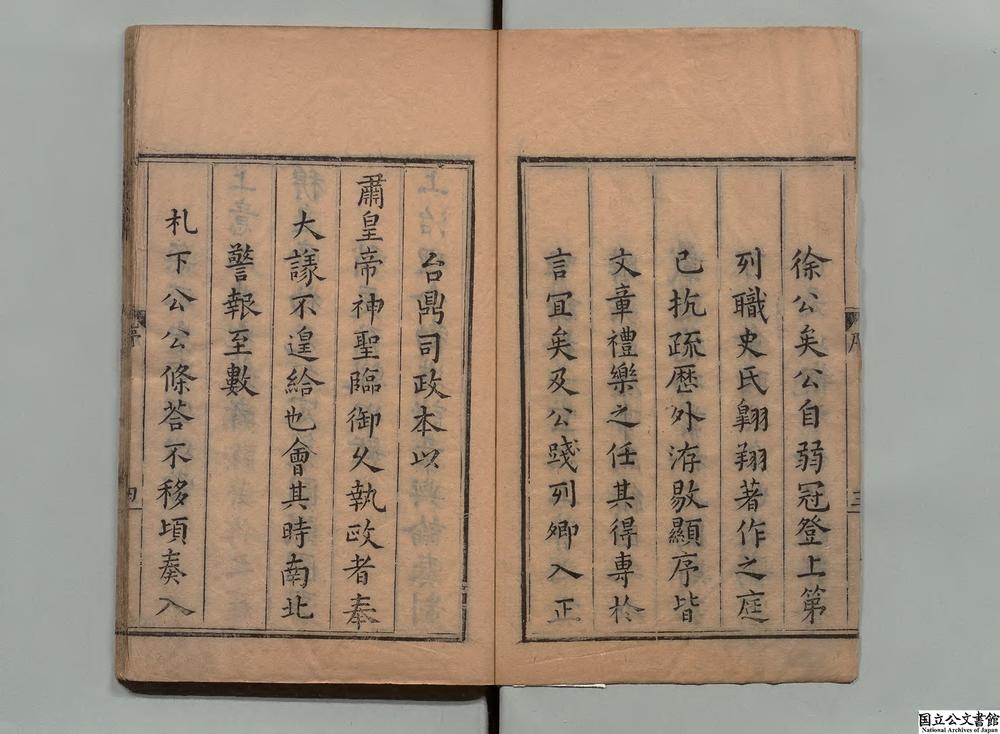 徐公矣公自弱冠登上第
列職史氏翺翔著作之庭
已抗疏歷外洊敭顯序皆
文章禮樂之任其得專於
言冝矣及公踐列卿入正
台鼎司政本以
肅皇帝神聖臨御久執政者奉
大謀不遑給也會其時南北
警報至數
札下公公條荅不移頃奏入
序
三
四
国立公文書館
National Archives of Japan